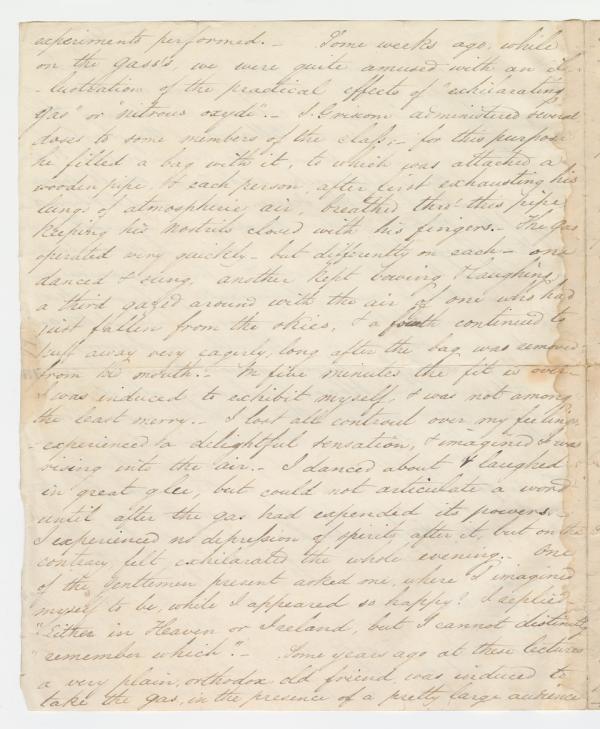 experiments performed. — Some weeks ago, while
on the gass's, we were quite amused with an il-
-lustration of the practical effects of "exhilarating
Gas" or "nitrous oxyde". — J. Griscom administered several
doses to some members of the class; — for this purpose
he filled a bag with it, to which was attached a
wooden pipe, & each person, after first exhausting his
lungs of atmospheric air, breathed thro' this pipe
keeping his nostrils closed with his fingers. — The gas
operated very quickly — but differently on each — one
danced & sung, another kept bowing & laughing
a third gazed around with the air of one who had
just fallen from the skies, & a fourth continued to
puff away very eagerly, long after the bag was removed
from his mouth. — In five minutes the fit is over —
I was induced to exhibit myself, & was not among
the least merry. — I lost all controul over my feelings
- experienced a delightful sensation, & imagined I was
rising into the air. — I danced about & laughed
in great glee, but could not articulate a word
until after the gas had expended its powers. —
I experienced no depression of spirits after it, but on the
contrary felt exhilarated the whole evening. — One
of the gentlemen present asked me, where I imagined
myself to be, while I appeared so happy? I replied
"Either in Heaven or Ireland, but I cannot distinctly
"remember which". — Some years ago at these lectures
a very plain, orthodox old friend, was induced to
take the gas, in the presence of a pretty large audience